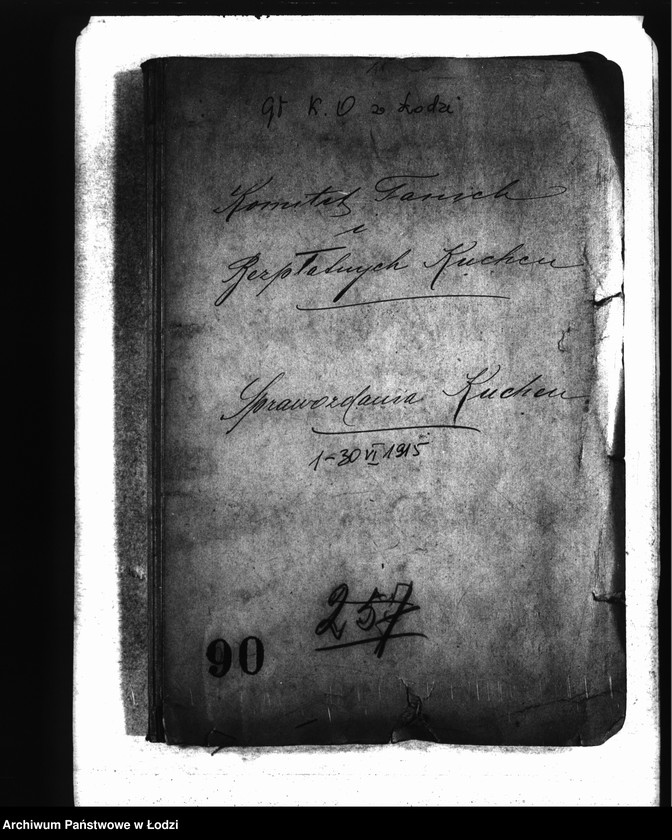 Gł K. O w Łodzi
Komitet Tanich
i
Bezpłatnych Kuchen
Sprawozdania Kuchen
1-30 VI 1915
257
90
Archiwum Państwowe w Łodzi